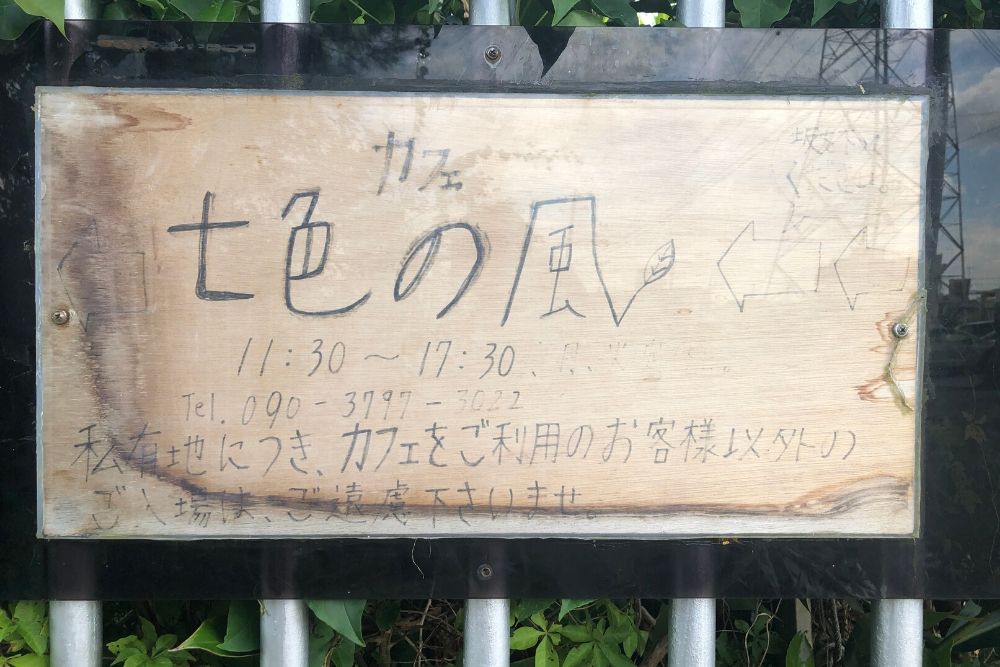 カフェ
七色の風
11:30～17:30
Tel. 090-3797-3022
私有地につき、カフェをご利用のお客様以外の
ご入場は、ご遠慮下さいませ。